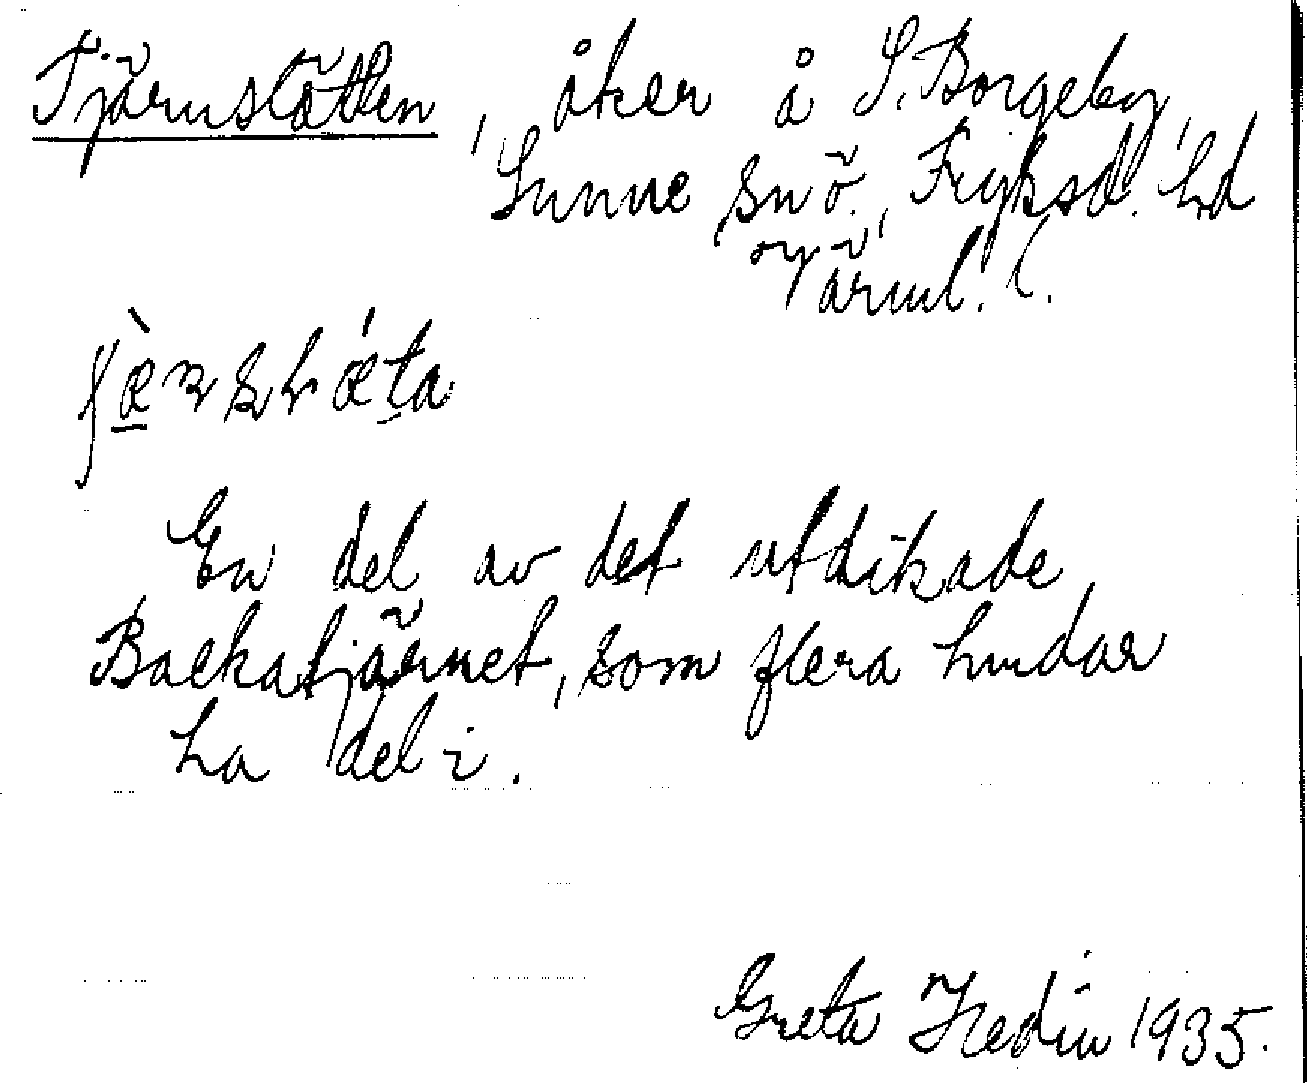 Tjärnslätten, åker å S. Borgeby,
Sunne snö., Fryksd. hd
Värml. l.
En del av det utdikade
Backatjärnet, som flera hudar
ha del i.
Greta Hedin 1935.